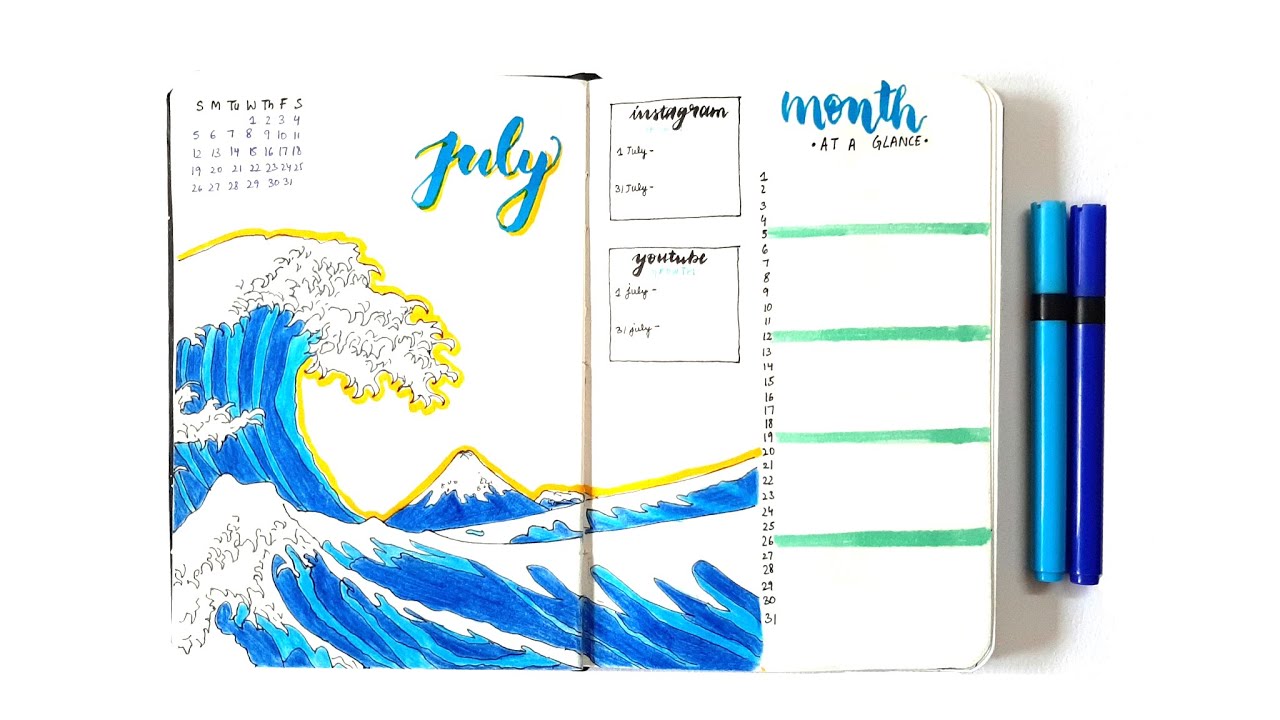 S M Tu W Th F S
1 2 3 4
5 6 7 8 9 10 11
12 13 14 15 16 17 18
19 20 21 22 23 24 25
26 27 28 29 30 31
july
instagram
1 July -
31 July -
youtube
GROWTH
1 july -
31 july -
month
• AT A GLANCE •
1
2
3
4
5
6
7
8
9
10
11
12
13
14
15
16
17
18
19
20
21
22
23
24
25
26
27
28
29
30
31